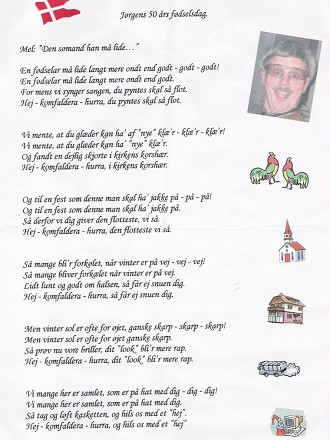 Jørgens 50 års fødselsdag.
Mel: "Den sømand han må lide..."
En fødselar må lide langt mere ondt end godt - godt - godt!
En fødselar må lide langt mere ondt end godt.
For mens vi synger sangen, du pyntes skal så flot.
Hej - komfaldera - hurra, du pyntes skal så flot.
Vi mente, at du glæder kan ha' af "nye" klæ'r - klæ'r - klæ'r!
Vi mente, at du glæder kan ha' "nye" klæ'r.
Og fandt en dejlig skjorte i kirkens korshær.
Hej - komfaldera - hurra, i kirkens korshær.
Og til en fest som denne man skal ha' jakke på - på - på!
Og til en fest som denne man skal ha' jakke på.
Så derfor vi dig giver den flotteste, vi så.
Hej - komfaldera - hurra, den flotteste vi så.
Så mange bli'r forkølet, når vinter er på vej - vej - vej!
Så mange bliver forkølet, når vinter er på vej.
Lidt lunt og godt om halsen, så får ej snuen dig.
Hej - komfaldera - hurra, så får ej snuen dig.
Men vinter sol er ofte for øjet, ganske skarp - skarp - skarp!
Men vinter sol er ofte for øjet ganske skarp.
Så prøv nu vore briller, dit "look" bli'r mere rap.
Hej - komfaldera - hurra, dit "look" bli'r mere rap.
Vi mange her er samlet, som er på hat med dig - dig - dig!
Vi mange her er samlet, som er på hat med dig.
Så tag og løft kasketten, og hils os med et "hej".
Hej - komfaldera - hurra, og hils os med et "hej".